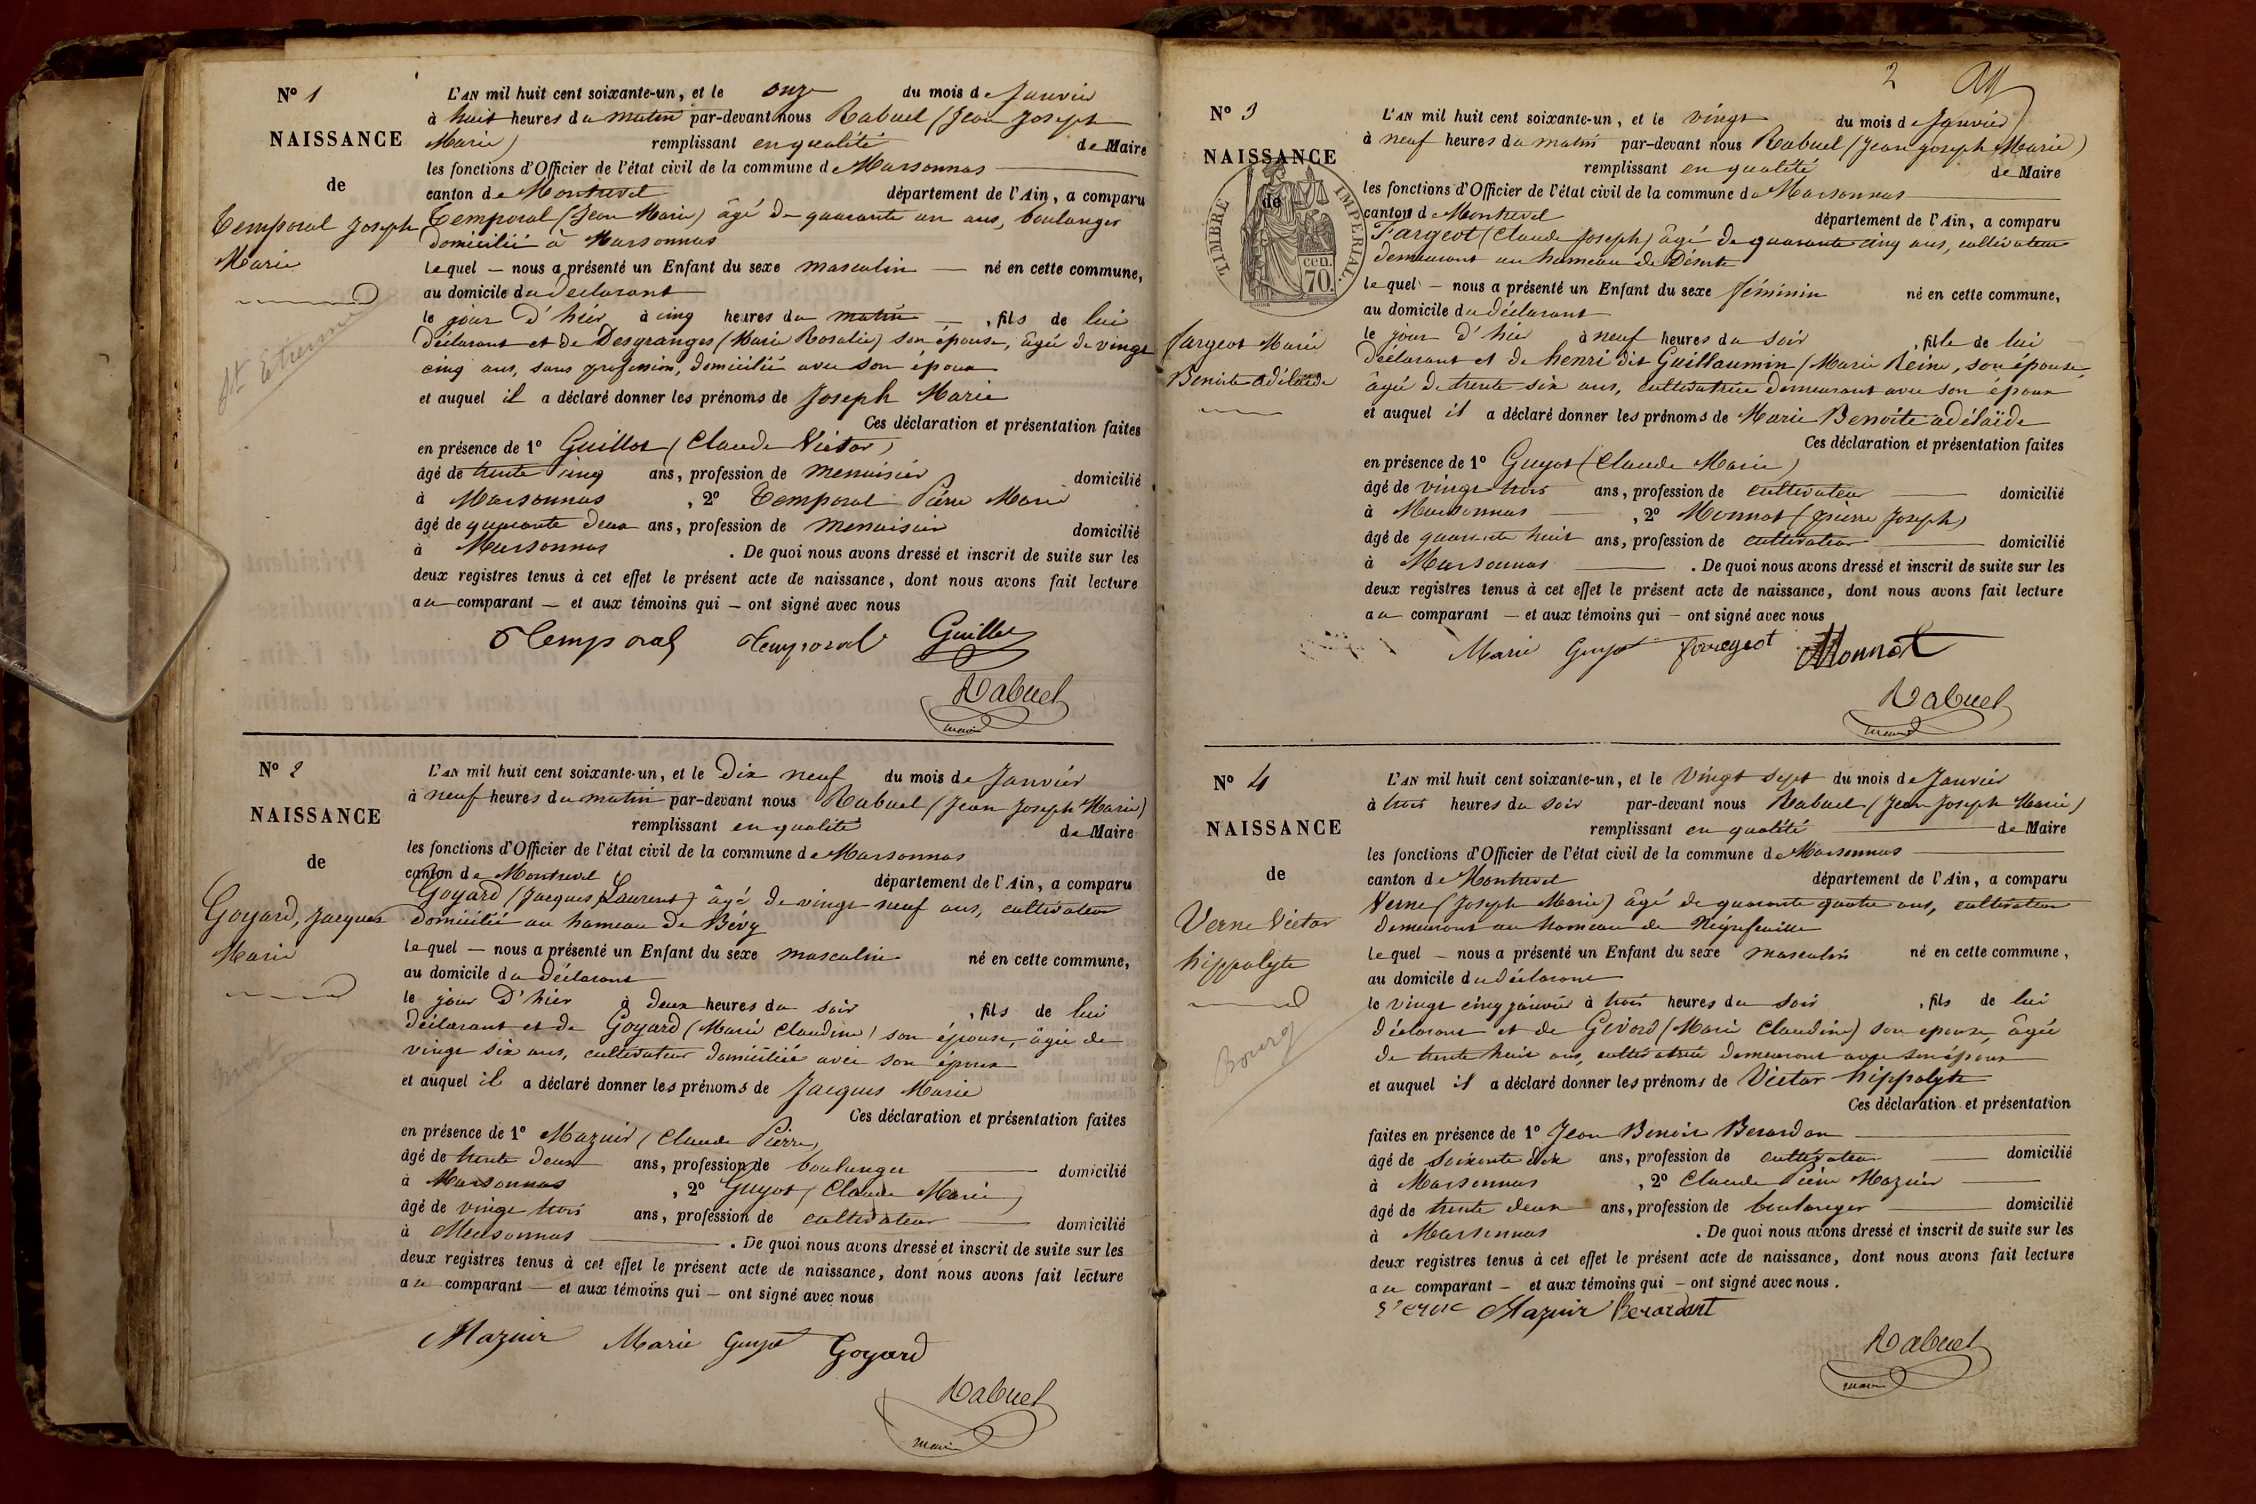 N° 1
NAISSANCE
de
Temporal Joseph
Marie
St Etienne
L'AN mil huit cent soixante-un, et le onze du mois de Janvier
à huit heures du matin par-devant nous Rabuel (Jean Joseph
Marie) remplissant en qualité de Maire
les fonctions d'Officier de l'état civil de la commune de Marsonnas
canton de Montrevel département de l'Ain, a comparu
Temporal (Jean Marie) âgé de quarante un ans, boulanger
domicilié à Marsonnas
lequel — nous a présenté un Enfant du sexe masculin — né en cette commune,
au domicile du déclarant
le jour d'hier à cinq heures du matin — , fils de lui
déclarant et de Desgranges (Marie Rosalie) son épouse, âgée de vingt
cinq ans, sans profession, domiciliée avec son époux
et auquel il a déclaré donner les prénoms de Joseph Marie
Ces déclaration et présentation faites
en présence de 1° Guillot (Claude Victor)
âgé de trente cinq ans, profession de menuisier domicilié
à Marsonnas , 2° Temporal Pierre Marie
âgé de quarante deux ans, profession de menuisier domicilié
à Marsonnas . De quoi nous avons dressé et inscrit de suite sur les
deux registres tenus à cet effet le présent acte de naissance, dont nous avons fait lecture
au comparant — et aux témoins qui — ont signé avec nous
Temporal Temporal Guillot
Rabuel
maire
N° 2
NAISSANCE
de
Goyard, Jacques
Marie
L'AN mil huit cent soixante-un, et le Dix neuf du mois de Janvier
à neuf heures du matin par-devant nous Rabuel (Jean Joseph Marie)
remplissant en qualité de Maire
les fonctions d'Officier de l'état civil de la commune de Marsonnas
canton de Montrevel département de l'Ain, a comparu
Goyard (Jacques Laurent) âgé de vingt neuf ans, cultivateur
domicilié au hameau de Bévy
lequel — nous a présenté un Enfant du sexe masculin né en cette commune,
au domicile du déclarant
le jour d'hier à deux heures du soir , fils de lui
déclarant et de Goyard (Marie Claudine) son épouse, âgée de
vingt six ans, cultivateur domiciliée avec son époux
et auquel il a déclaré donner les prénoms de Jacques Marie
Ces déclaration et présentation faites
en présence de 1° Mazuir (Claude Pierre)
âgé de trente deux ans, profession de boulanger domicilié
à Marsonnas , 2° Guyot (Claude Marie)
âgé de vingt trois ans, profession de cultivateur domicilié
à Marsonnas . De quoi nous avons dressé et inscrit de suite sur les
deux registres tenus à cet effet le présent acte de naissance, dont nous avons fait lecture
au comparant — et aux témoins qui — ont signé avec nous
Mazuir Marie Guyot Goyard
Rabuel
maire
2
N° 3
NAISSANCE
de
TIMBRE IMPERIAL
70 cen.
Fargeot Marie
Benoite adélaïde
L'AN mil huit cent soixante-un, et le vingt du mois de Janvier
à neuf heures du matin par-devant nous Rabuel (Jean Joseph Marie)
remplissant en qualité de Maire
les fonctions d'Officier de l'état civil de la commune de Marsonnas
canton de Montrevel département de l'Ain, a comparu
Fargeot (Claude Joseph) âgé de quarante cinq ans, cultivateur
demeurant au hameau de Déserte
lequel — nous a présenté un Enfant du sexe féminin né en cette commune,
au domicile du déclarant
le jour d'hier à neuf heures du soir , fille de lui
déclarant et de henri dit Guillaumin (Marie Reine, son épouse,
âgée de trente six ans, cultivatrice demeurant avec son époux
et auquel il a déclaré donner les prénoms de Marie Benoite adélaïde
Ces déclaration et présentation faites
en présence de 1° Guyot (Claude Marie)
âgé de vingt trois ans, profession de cultivateur domicilié
à Marsonnas , 2° Monnot (pierre Joseph)
âgé de quarante huit ans, profession de cultivateur domicilié
à Marsonnas . De quoi nous avons dressé et inscrit de suite sur les
deux registres tenus à cet effet le présent acte de naissance, dont nous avons fait lecture
au comparant — et aux témoins qui — ont signé avec nous
Marie Guyot fargeot Monnot
Rabuel
maire
N° 4
NAISSANCE
de
Verne Victor
hippolyte
Bourg
L'AN mil huit cent soixante-un, et le Vingt sept du mois de Janvier
à trois heures du soir par-devant nous Rabuel (Jean Joseph Marie)
remplissant en qualité de Maire
les fonctions d'Officier de l'état civil de la commune de Marsonnas
canton de Montrevel département de l'Ain, a comparu
Verne (Joseph Marie) âgé de quarante quatre ans, cultivateur
demeurant au hameau de Négrefeuille
lequel — nous a présenté un Enfant du sexe masculin né en cette commune,
au domicile du déclarant
le vingt cinq janvier à trois heures du soir , fils de lui
déclarant et de Givord (Marie Claudine) son épouse, âgée
de trente huit ans, cultivatrice demeurant avec son époux
et auquel il a déclaré donner les prénoms de Victor hippolyte
Ces déclaration et présentation
faites en présence de 1° Jean Benoit Berardan
âgé de soixante dix ans, profession de cultivateur domicilié
à Marsonnas , 2° Claude Pierre Mazuir
âgé de trente deux ans, profession de boulanger domicilié
à Marsonnas . De quoi nous avons dressé et inscrit de suite sur les
deux registres tenus à cet effet le présent acte de naissance, dont nous avons fait lecture
au comparant — et aux témoins qui — ont signé avec nous.
Verne Mazuir Berardant
Rabuel
maire